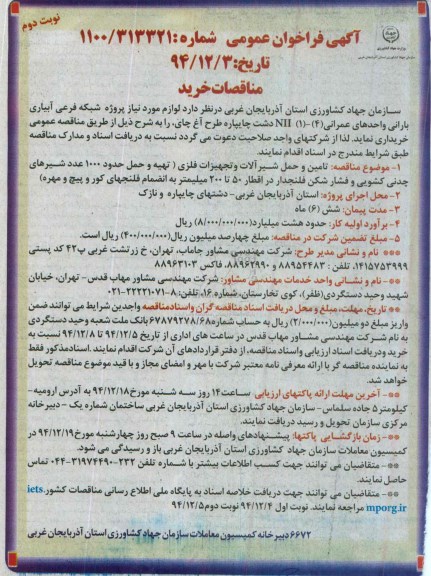 نوبت دوم
آگهی فراخوان عمومی شماره: ۱۱۰۰/۳۱۳۳۲۱
تاریخ: ۹۴/۱۲/۳
مناقصات خرید
سازمان جهاد کشاورزی استان آذربایجان غربی درنظر دارد لوازم مورد نیاز پروژه شبکه فرعی آبیاری
بارانی واحدهای عمرانی(۴) -(۱) NII دشت چایپاره طرح آغ چای، را به شرح ذیل از طریق مناقصه عمومی
خریداری نماید. لذا از شرکتهای واجد صلاحیت دعوت می گردد نسبت به دریافت اسناد و مدارک مناقصه
طبق شرایط مندرج در اسناد اقدام نمایند.
۱- موضوع مناقصه: تامین و حمل شیر آلات وتجهیزات فلزی ( تهیه و حمل حدود ۱۰۰۰ عدد شیرهای
چدنی کشویی و فشار شکن فلنجدار در اقطار ۵۰ تا ۲۰۰ میلیمتر به انضمام فلنجهای کور و پیچ و مهره)
۲- محل اجرای پروژه: استان آذربایجان غربی- دشتهای چایپاره و نازک
۳- مدت پیمان: شش (۶) ماه
۴- برآورد اولیه کار: حدود هشت میلیارد(۸/۰۰۰/۰۰۰/۰۰۰) ریال
۵- مبلغ تضمین شرکت در مناقصه: مبلغ چهارصد میلیون ریال(۴۰۰/۰۰۰/۰۰۰) ریال است.
*** نام و نشانی مدیر طرح: شرکت مهندسی مشاور جاماب، تهران، خ زرتشت غربی پ۴۲ کد پستی
۱۴۱۵۷۵۳۹۹۹، تلفن : ۸۸۹۵۴۴۸۳ و ۸۸۹۶۲۹۹۰، فاکس ۸۸۹۶۳۱۰۳
**- نام و نشانی واحد خدمات مهندسی مشاور: شرکت مهندسی مشاور مهاب قدس- تهران، خیابان
شهید وحید دستگردی(ظفر)، کوی تخارستان، شماره ۱۶، تلفن: ۸-۲۲۲۲۱۰۷۱-۰۲۱
** تاریخ، مهلت، مبلغ و محل دریافت اسناد مناقصه گران واسنادمناقصه واجدین شرایط می توانند ضمن
واریز مبلغ دو میلیون(۲/۰۰۰/۰۰۰) ریال به حساب شماره۶۷۸۷۹۲۷۸/۶۸بانک ملت شعبه وحید دستگردی
به نام شرکت مهندسی مشاور مهاب قدس در ساعت های اداری از تاریخ ۹۴/۱۲/۵ تا ۹۴/۱۲/۸ نسبت به
خرید ودریافت اسناد ارزیابی واسناد مناقصه، از دفتر قراردادهای آن شرکت اقدام نمایند. اسنادمذکور فقط
به نماینده مناقصه گر با ارائه معرفی نامه معتبر شرکت با مهر و امضای مجاز و با قید موضوع مناقصه تحویل
خواهد شد.
** - آخرین مهلت ارائه پاکتهای ارزیابی ساعت۱۴ روز سه شنبه مورخ۹۴/۱۲/۱۸ به آدرس ارومیه-
کیلومتر ۵ جاده سلماس- سازمان جهاد کشاورزی استان آذربایجان غربی ساختمان شماره یک - دبیرخانه
مرکزی سازمان تحویل و رسید دریافت نمایند.
**- زمان بازگشایی پاکتها: پیشنهادهای واصله در ساعت ۹ صبح روز چهارشنبه مورخ ۹۴/۱۲/۱۹ در
کمیسیون معاملات سازمان جهاد کشاورزی استان آذربایجان غربی باز و رسیدگی می شود.
** - متقاضیان می توانند جهت کسب اطلاعات بیشتر با شماره تلفن ۲۳۲-۳۱۹۷۴۴۹۰-۰۴۴ تماس
حاصل نمایند.
** - متقاضیان می توانند جهت دریافت خلاصه اسناد به پایگاه ملی اطلاع رسانی مناقصات کشور iets.
mporg.ir مراجعه نمایند. نوبت اول ۹۴/۱۲/۴ نوبت دوم ۹۴/۱۲/۵
۶۶۷۲ دبیرخانه کمیسیون معاملات سازمان جهاد کشاورزی استان آذربایجان غربی